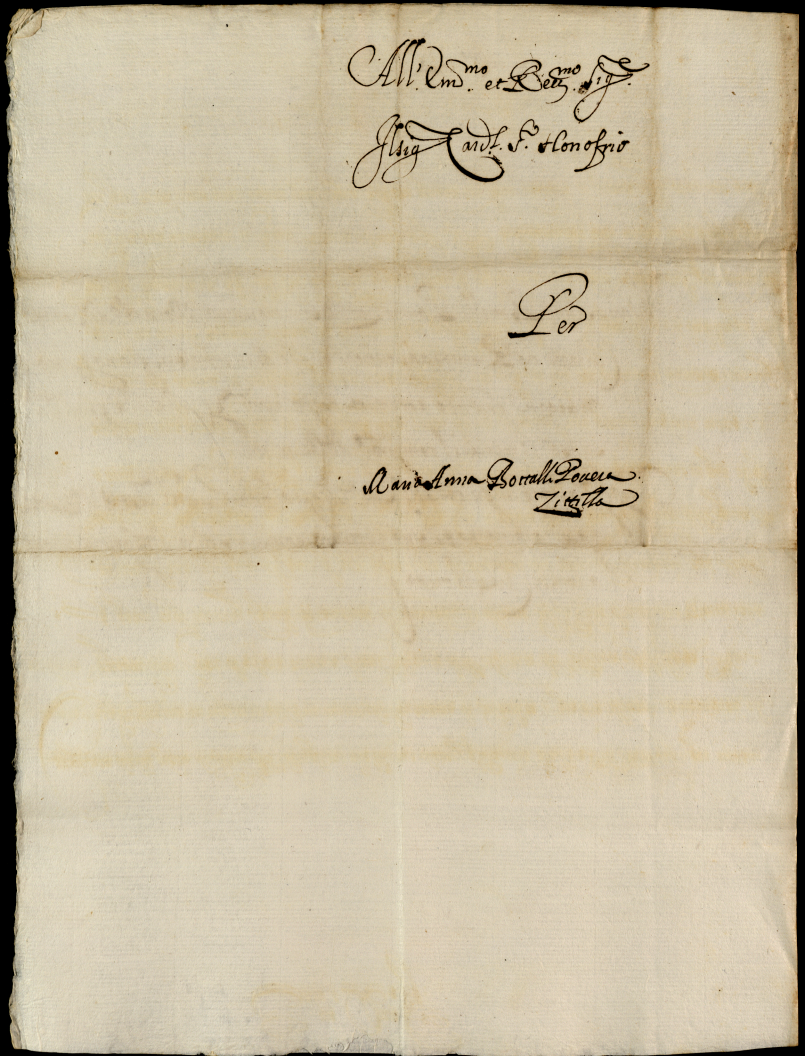 All' Em.mo et Re.mo Sig.r
Il Sig.r Card.l S.to Honofrio
Per
Maria Anna Bottalli Povera
Zittella